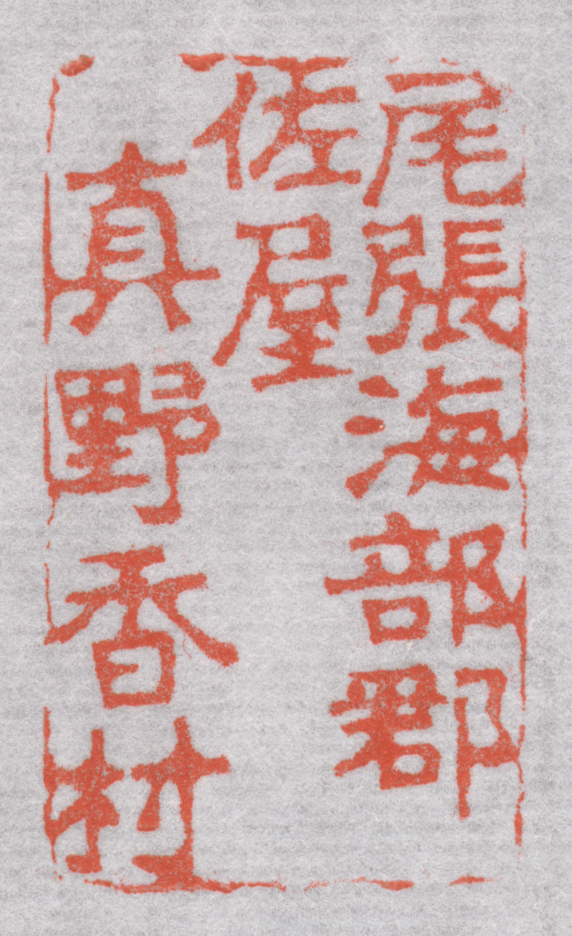 尾張海部郡
佐屋
真野香村